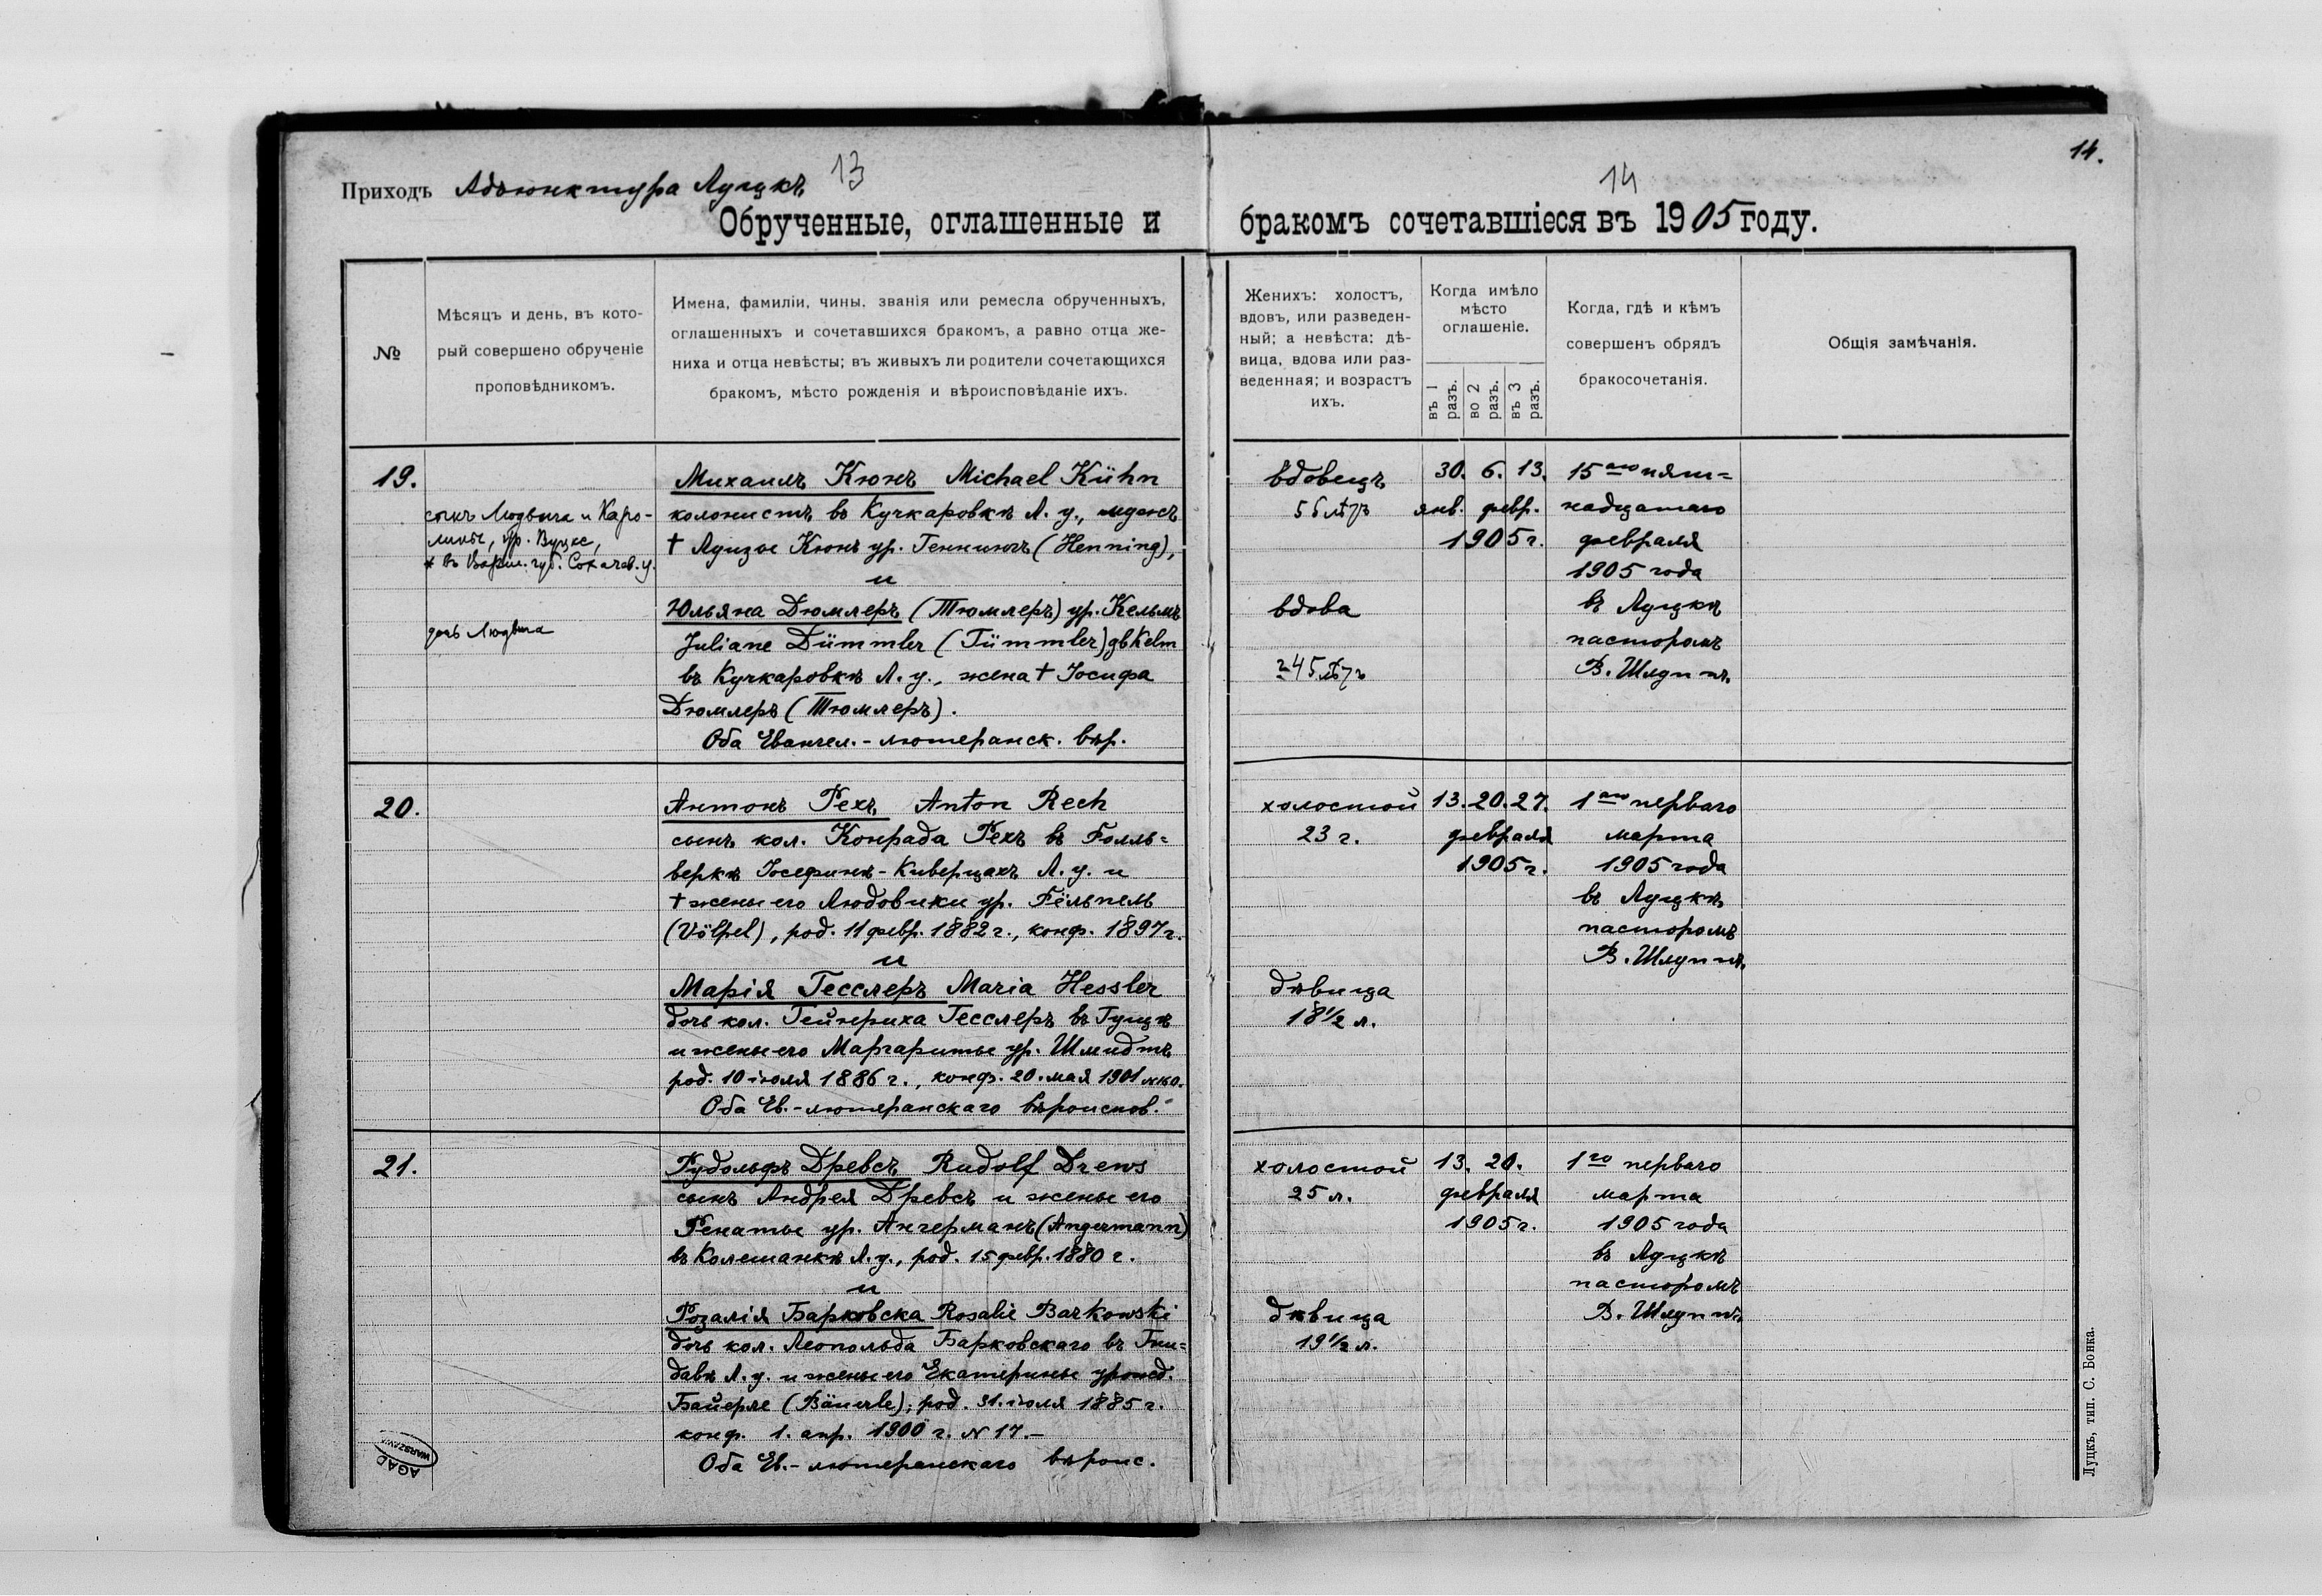 13
14
14.
Приходъ Адъюнктура Луцкъ
Обрученные, оглашенные и бракомъ сочетавшіеся въ 1905 году.
№
Мѣсяцъ и день, въ кото-
рый совершено обрученіе
проповѣдникомъ.
Имена, фамиліи, чины. званія или ремесла обрученныхъ,
оглашенныхъ и сочетавшихся бракомъ, а равно отца же-
ниха и отца невѣсты; въ живыхъ ли родители сочетающихся
бракомъ, мѣсто рожденія и вѣроисповѣданіе ихъ.
Женихъ: холостъ,
вдовъ, или разведен-
ный; а невѣста: дѣ-
вица, вдова или раз-
веденная; и возрастъ
ихъ.
Когда имѣло
мѣсто
оглашеніе.
въ 1 разъ.
во 2 разъ.
въ 3 разъ.
Когда, гдѣ и кѣмъ
совершенъ обрядъ
бракосочетанія.
Общія замѣчанія.
19.
сынъ Людвига и Каро-
лины, ур. Вуцке,
* въ Варш. губ. Сохачев. у.
дочь Людвига
Михаилъ Кюнъ Michael Kühn
колонистъ въ Кучкаровкѣ Л. у., мужъ
† Луизы Кюнъ ур. Геннингъ (Henning),
и
Юльяна Дюмлеръ (Тюмлеръ) ур. Кельмъ
Juliane Dümmler (Tümmler) gb Kelm
въ Кучкаровкѣ Л. у., жена † Іосифа
Дюмлеръ (Тюмлеръ).
Оба Евангел.-лютеранск. вѣр.
вдовецъ
56 лѣтъ
вдова
45 лѣтъ
30. 6. 13.
янв. февр.
1905 г.
15аго пят=
надцатаго
февраля
1905 года
въ Луцкѣ
пасторомъ
В. Шлуппъ.
20.
Антонъ Рехъ Anton Rech
сынъ кол. Конрада Рехъ въ Фоль=
веркѣ Іосефинѣ-Киверцахъ Л. у. и
† жены его Людовики ур. Фёльпель
(Völpel), род. 11 февр. 1882 г., конф. 1897 г.
и
Марія Гесслеръ Maria Hessler
дочь кол. Гейнриха Гесслеръ въ Гущѣ
и жены его Маргариты ур. Шмидтъ
род. 10 іюля 1886 г., конф. 20. мая 1901
Оба Ев.-лютеранскаго вѣроиспов.
холостой
23 г.
дѣвица
18 1/2 л.
13. 20. 27.
февраля
1905 г.
1аго перваго
марта
1905 года
въ Луцкѣ
пасторомъ
В. Шлуппъ.
21.
Рудольфъ Древсъ Rudolf Drews
сынъ Андрея Древсъ и жены его
Ренаты ур. Ангерманъ (Angermann)
въ Колешанкѣ Л. у., род. 15 февр. 1880 г.
и
Розалія Барковска Rosalie Barkowski
дочь кол. Леопольда Барковскаго въ Гни=
давѣ Л. у. и жены его Екатерины урожд.
Байерле (Bäuerle), род. 31. іюля 1885 г.
конф. 1. апр. 1900 г. N 17.-
Оба Ев.-лютеранскаго вѣроис.
холостой
25 л.
дѣвица
19 1/2 л.
13. 20.
февраля
1905 г.
1го перваго
марта
1905 года
въ Луцкѣ
пасторомъ
В. Шлуппъ.
AGAD
WARSZAWA
Луцкъ, тип. С. Бонка.